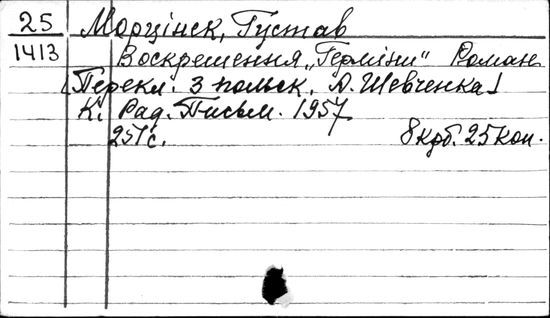 25 Морцінек, Густав
1413 Воскрешення „Герміни" Роман
(Перекл. з польск. А. Шевченка)
К. Рад. Письм. 1957
251с. 8 крб. 25 коп.